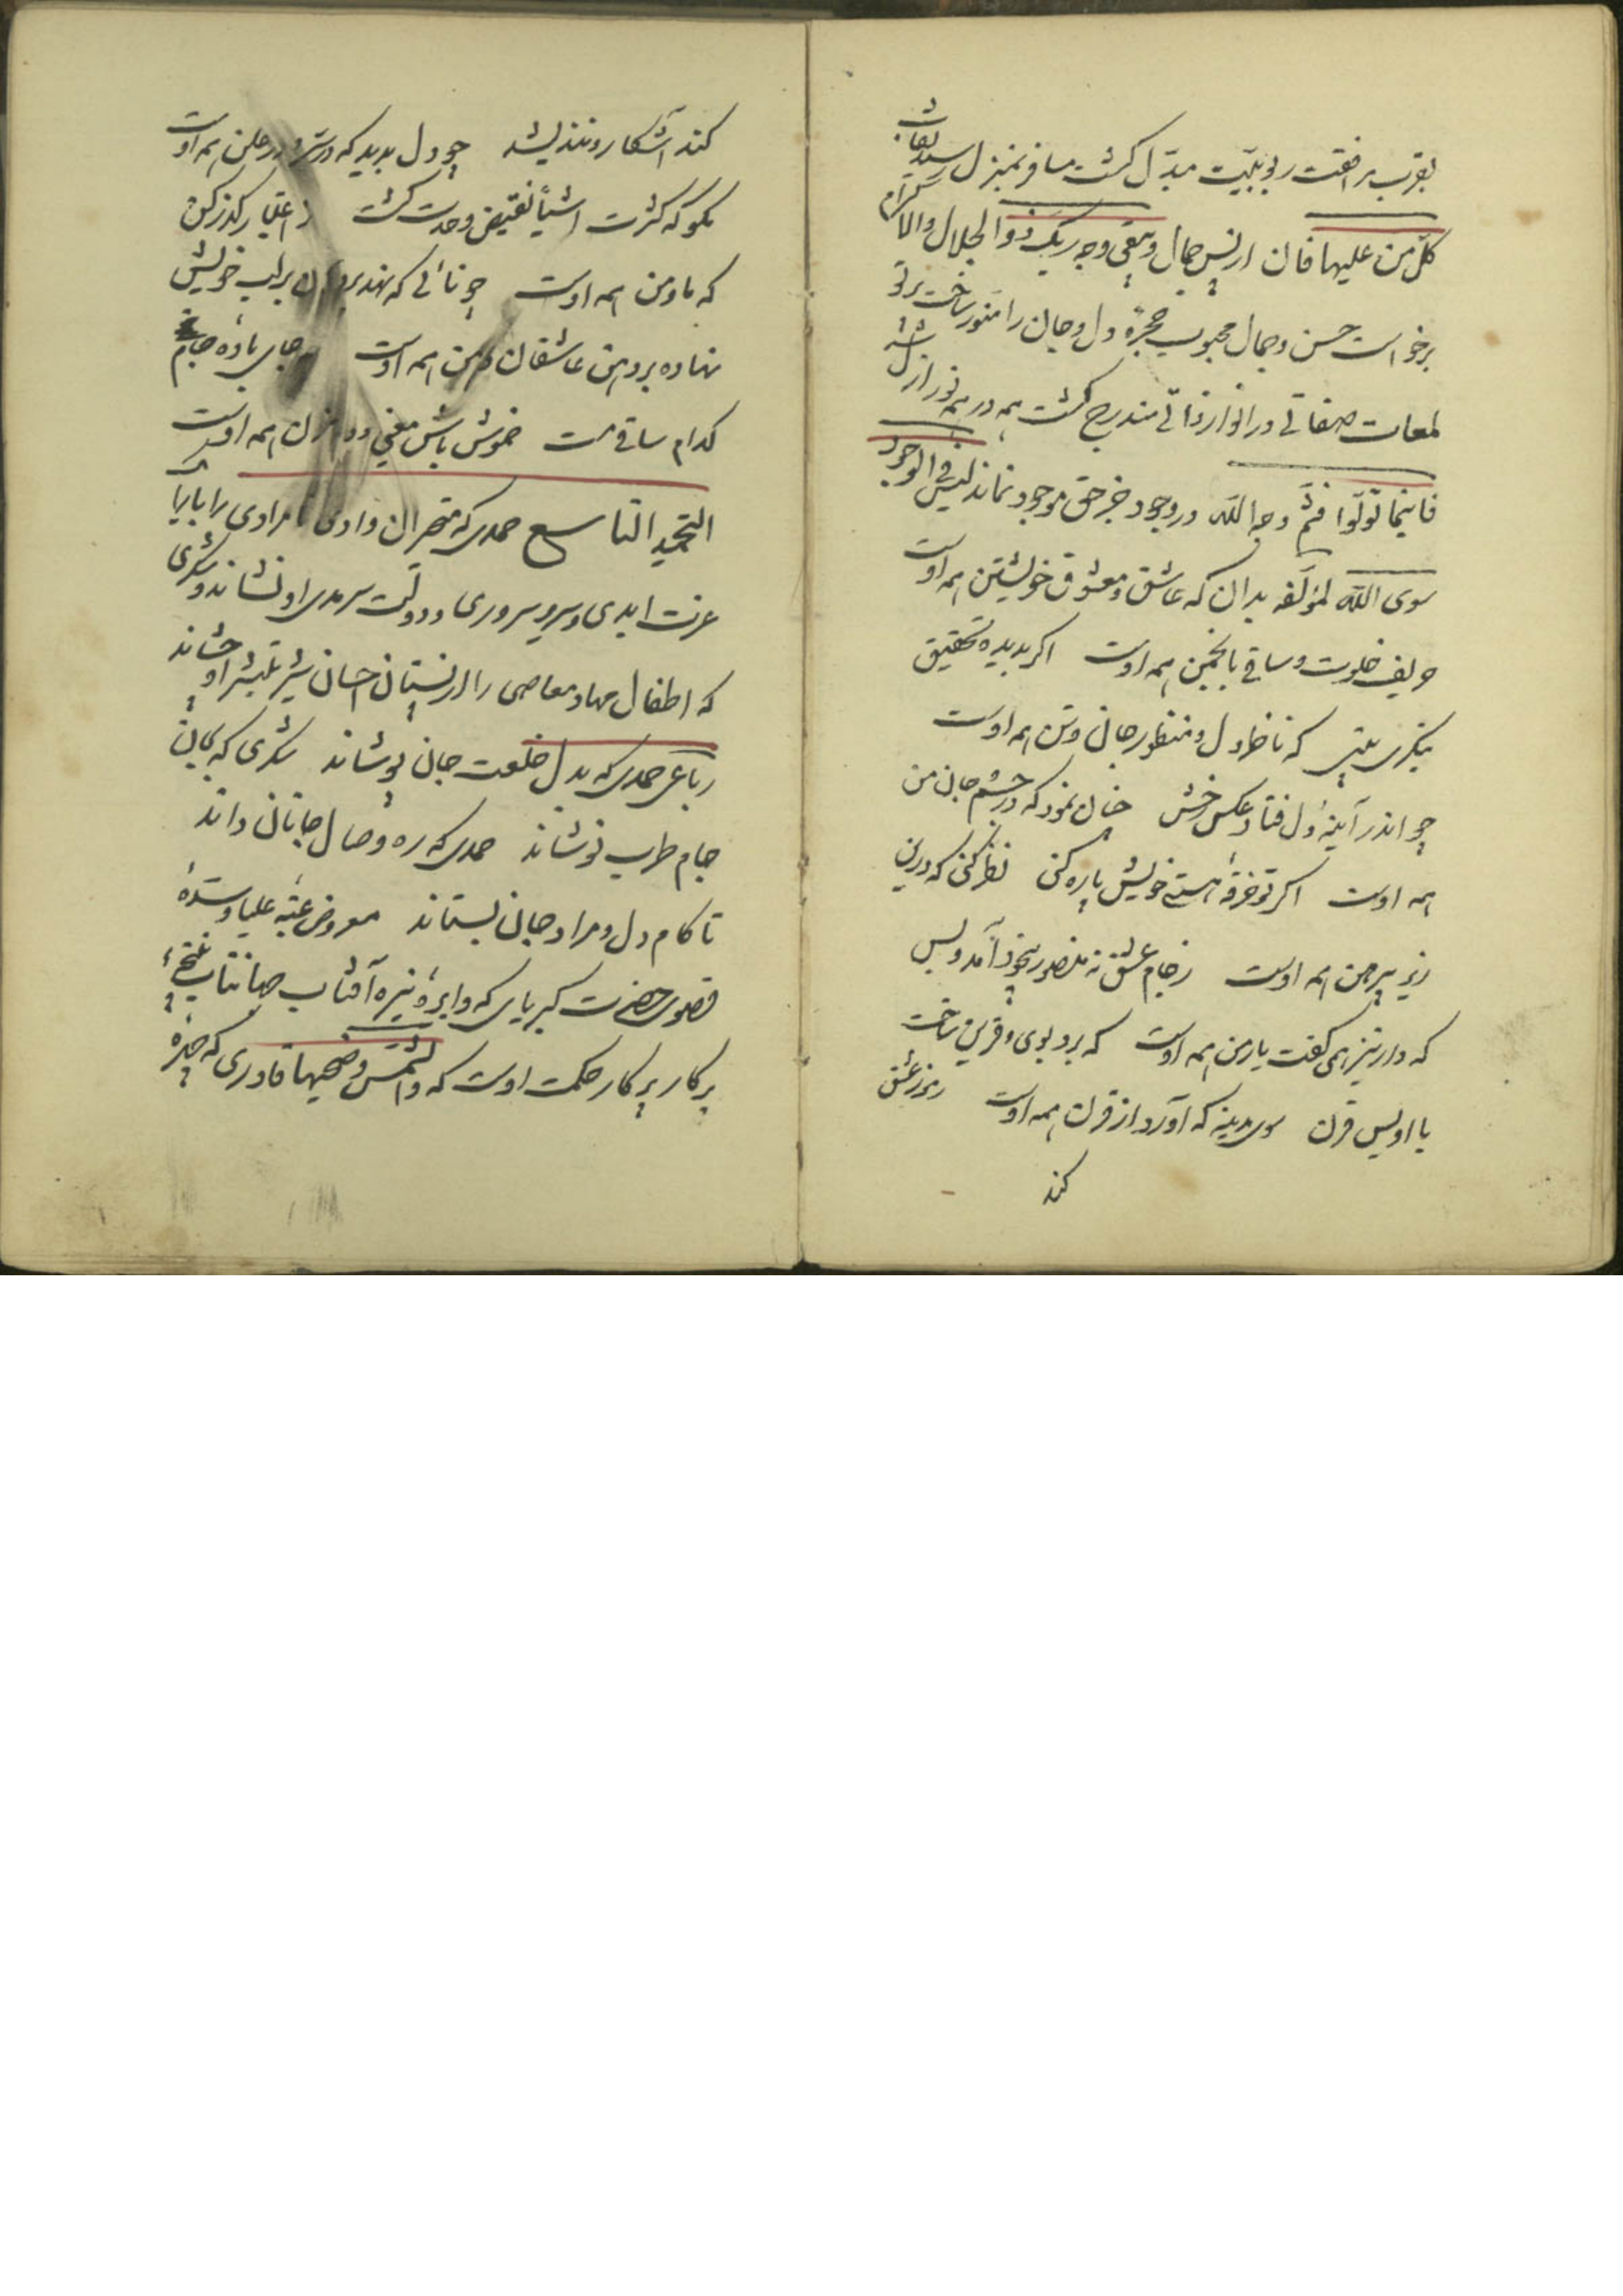 بقرب مرافقت ربوبیت مبدّل کشت مسافر بمنزل رسید نقاب
کلّ من علیها فان از پس جمال ویبقی وجه ربّک ذوالجلال والاکرام
برخواست حسن وجمال محبوب حجرهٔ دل وجان را منوّر ساخت پرتو
لمعات صفاتی در انوار ذاتی مندرج کشت همه در هم نور ازل شد
فاینما تولّوا فثمّ وجه اللّه در وجود جز حق موجود نماند لیس فی الوجود
سوی اللّه لمؤلّفه بدان که عاشق ومعشوق خویشتن همه اوست
حریف خلوت وساقی بانجمن همه اوست اکر بدیده تحقیق
بنکری بینی که ناظر دل ومنظور جان وتن همه اوست
چو اندر آینهٔ دل فتاد عکس رخش چنان نمود که در چشم جان من
همه اوست اکر تو خرقهٔ هستی خویش پاره کنی نظر کنی که درین
زیر پیرهن همه اوست زجام عشق نه منصور بیخود آمد وبس
که دار نیز همی کفت یار من همه اوست که برد بوی وقرین ساخت
با اویس قرن سوی مدینه که آورد از قرن همه اوست رموز عشق
کند
کند آشکار ونندیشد چو دل بدید که در سرّ ودر علن همه اوست
مکو که کثرت اشیأ نقیض وحدت کشت ز اعتبار کذر کن
که ما ومن همه اوست چو نائی که نهد بر لب خویش
نهاده بر دهن عاشقان دهن همه اوست چه جای باده چه جام
کدام ساقی مست خموش باش معنی همه اوست
التحمید التاسع حمدی که متحیران وادی نامرادی را بابایا
عزت ابدی وسریر سروری ودولت سرمدی او نشاند وشکری
که اطفال مهاد معاصی را از پستان احسان شیر تلبشر او چشاند
رباعی حمدی که بدل خلعت جان پوشاند شکری که بجان
جام طرب نوشاند حمدی که ره وصال جانان داند
تا کام دل ومراد جان بستاند معروض عتبه علیا وسدهٔ
قصوی حضرت کبریای که دایرهٔ نیره آفتاب جهانتاب
پرکار پرکار حکمت اوست که والشمس وضحیها قادری که چهرهٔ